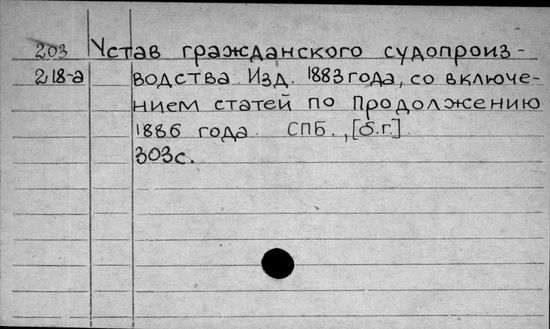 203 Устав гражданского судопроиз-
218-а водства Изд. 1883 года, со включе-
нием статей по Продолжению
1886 года СПБ., [б.г.]
303с.